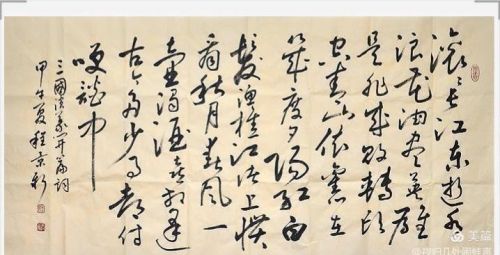 滚滚长江东逝水
浪花淘尽英雄
是非成败转头
空青山依旧在
几度夕阳红白
髮渔樵江渚上惯
看秋月春风一
壶浊酒喜相逢
古今多少事都付
笑谈中
三國演義开篇词
甲午夏程景
美篇